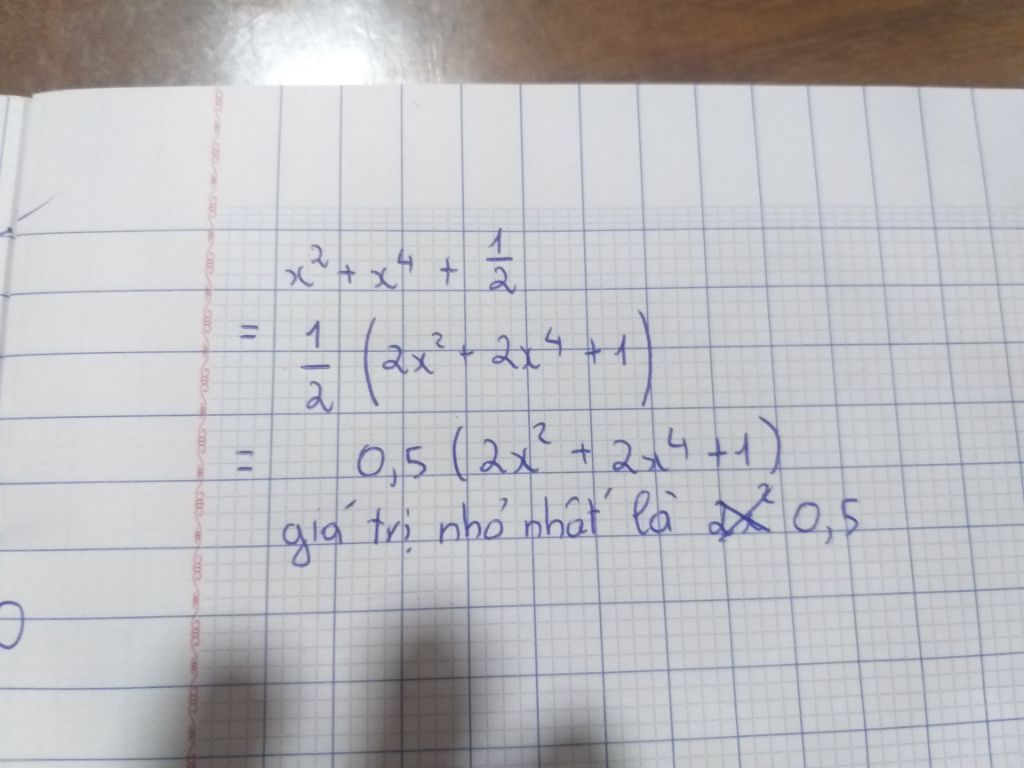 x² + x⁴ + 1/2
= 1/2 (2x² + 2x⁴ + 1)
= 0,5 (2x² + 2x⁴ + 1)
giá trị nhỏ nhất là 0,5